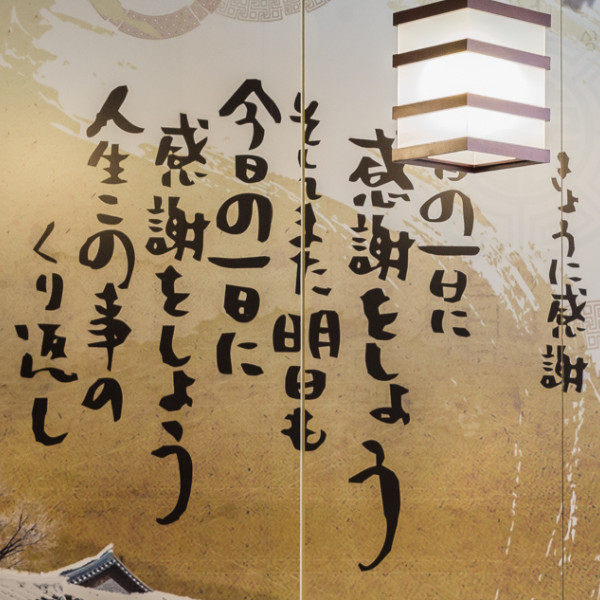 きょうに感謝
の一日に
感謝をしよう
そしてまた明日も
今日の一日に
感謝をしよう
人生この事の
くり返し